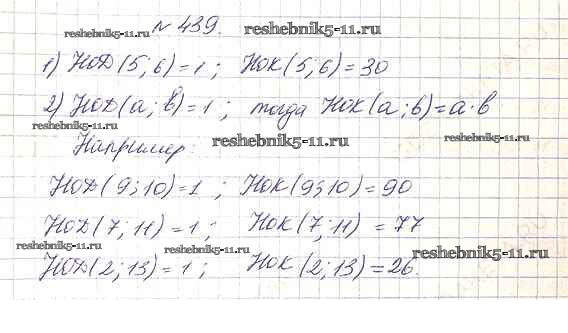 № 439.
reshebnik5-11.ru
reshebnik5-11.ru
1) НОД (5; 6) = 1 ; НОК (5; 6) = 30
2) НОД (a; b) = 1 ; тогда НОК (a; b) = a · b
reshebnik5-11.ru
Например:
reshebnik5-11.ru
reshebnik5-11.ru
НОД (9; 10) = 1 ; НОК (9; 10) = 90
НОД (7; 11) = 1 ; НОК (7; 11) = 77
reshebnik5-11.ru
reshebnik5-11.ru
reshebnik5-11.ru
НОД (2; 13) = 1 ; НОК (2; 13) = 26.